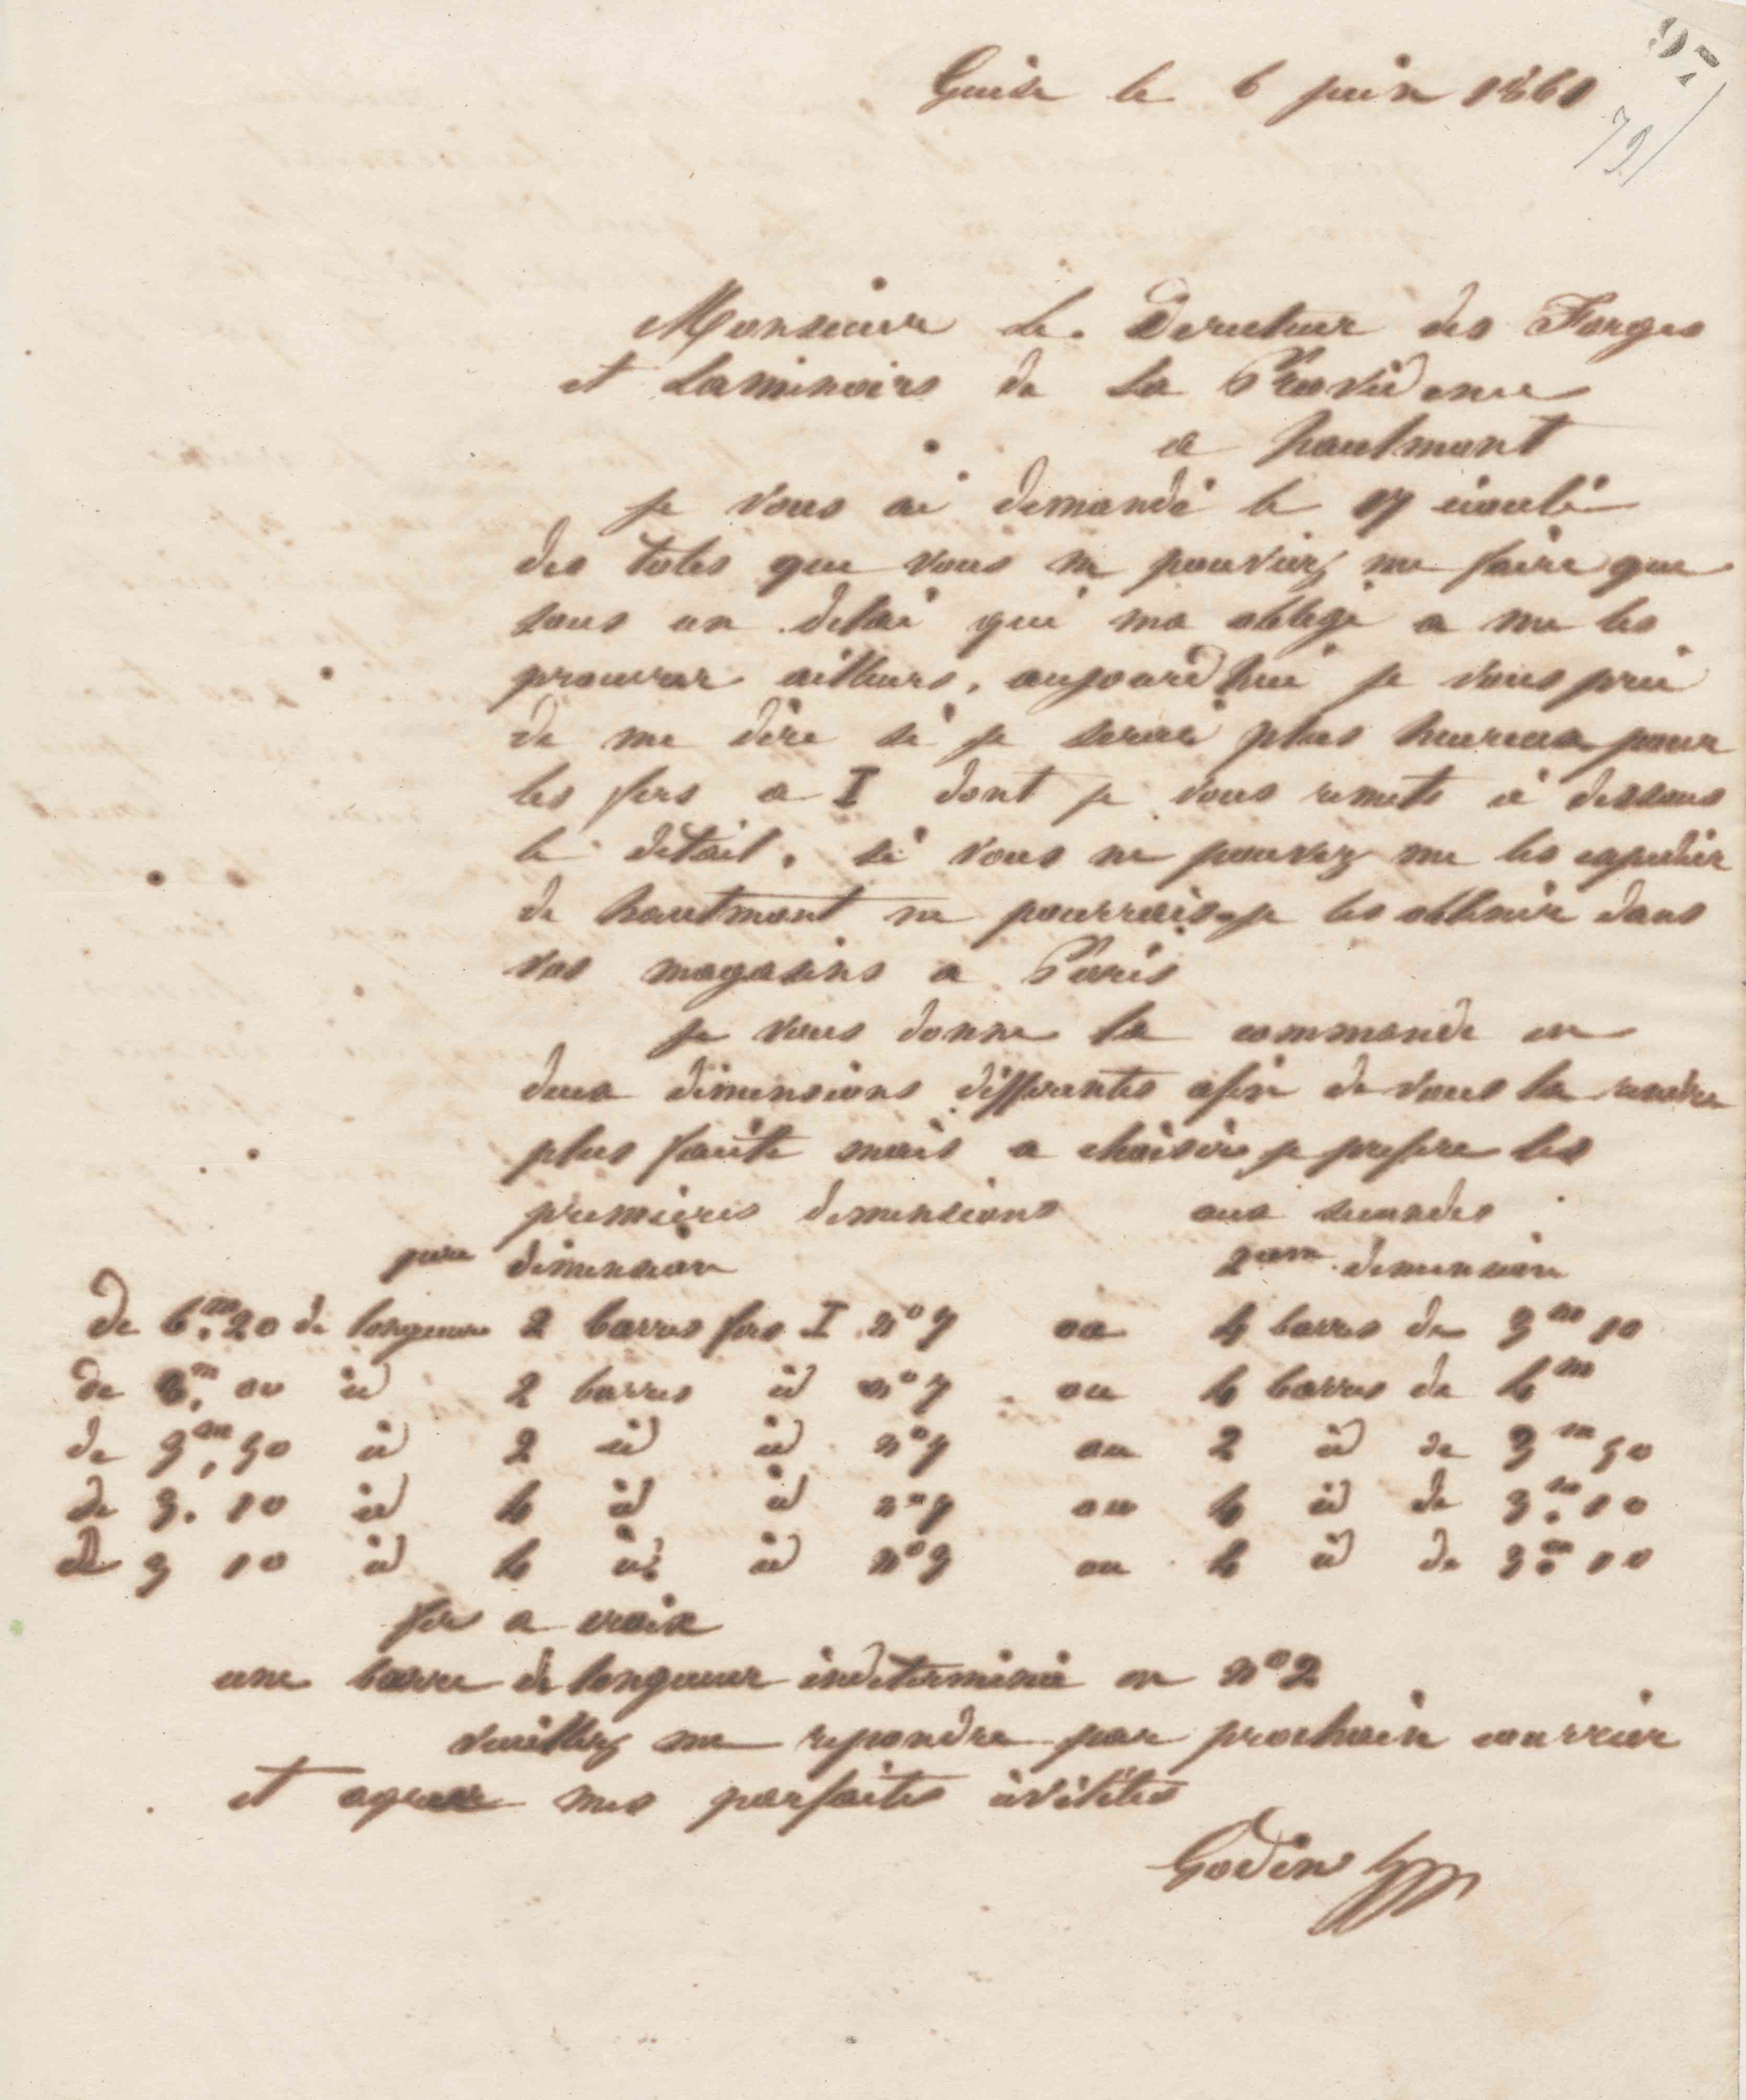 97
79
Guise le 6 juin 1861
Monsieur le Directeur des Forges
et Laminoirs de la Providence
a hautmont
je vous ai demandé le 17 écoulé
des toles que vous ne pouviez me faire que
sous un delai qui ma obligé a me les
procurer ailleurs, aujourd'hui je vous prie
de me dire si je serai plus heureux pour
les fers a I dont je vous remets ci dessous
le détail, si vous ne pouvez me les expedier
de hautmont ne pourrais-je les obtenir dans
vos magasins a Paris
je vous donne la commande en
deux dimensions differentes afin de vous la rendre
plus facile mais a choisir je prefere les
premieres dimensions aux secondes
pere dimension 2eme dimension
De 6.m20 de longueur 2 barres fers I no 7 ou 4 barres de 3m 10
de 8.m 00 id 2 barres id no 7 ou 4 barres de 4m
de 3m,50 id 2 id id no 7 ou 2 id de 3m 50
de 3. 10 id 4 id id no 7 ou 4 id de 3.m 10
de 3 10 id 4 id id no 3 ou 4 id de 3.m 10
fer a croix
une barre de longueur indeterminée en no 2
veuillez me repondre par prochain courrier
et agreer mes parfaites civilités
Godin